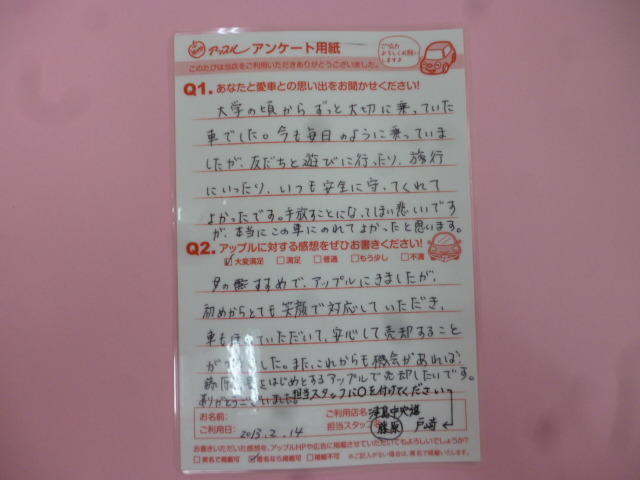 アップル アンケート用紙
ご協力
よろしくお願い
します♪
このたびは当店をご利用いただきありがとうございました。
Q1.あなたと愛車との思い出をお聞かせください!
大学の頃からずっと大切に乗っていた
車でした。今も毎日のように乗っていま
したが、友だちと遊びに行ったり、旅行
にいったり、いつも安全に守ってくれて
よかったです。手放すことになってしまい悲しいです
が、本当にこの車にのれてよかったと思います。
Q2.アップルに対する感想をぜひお書きください!
☑大変満足 □満足 □普通 □もう少し □不満
すすめで、アップルにきましたが、
初めからとても笑顔で対応していただき、
車も いただいて、安心して売却すること
が した。また、これからも機会があれば、
をはじめとするアップルで売却したいです。
ありがとうございました。担当スタッフに○を付けてください
お名前:
ご利用店名: 津島中央店
ご利用日: 2013.2.14
担当スタッフ 藤原 戸崎
お書きいただいた感想を、アップルHPや広告に掲載させていただいてもよろしいでしょうか?
□実名で掲載可 ☑匿名なら掲載可 □掲載不可 ※ご記入がない場合は、匿名で掲載いたします。